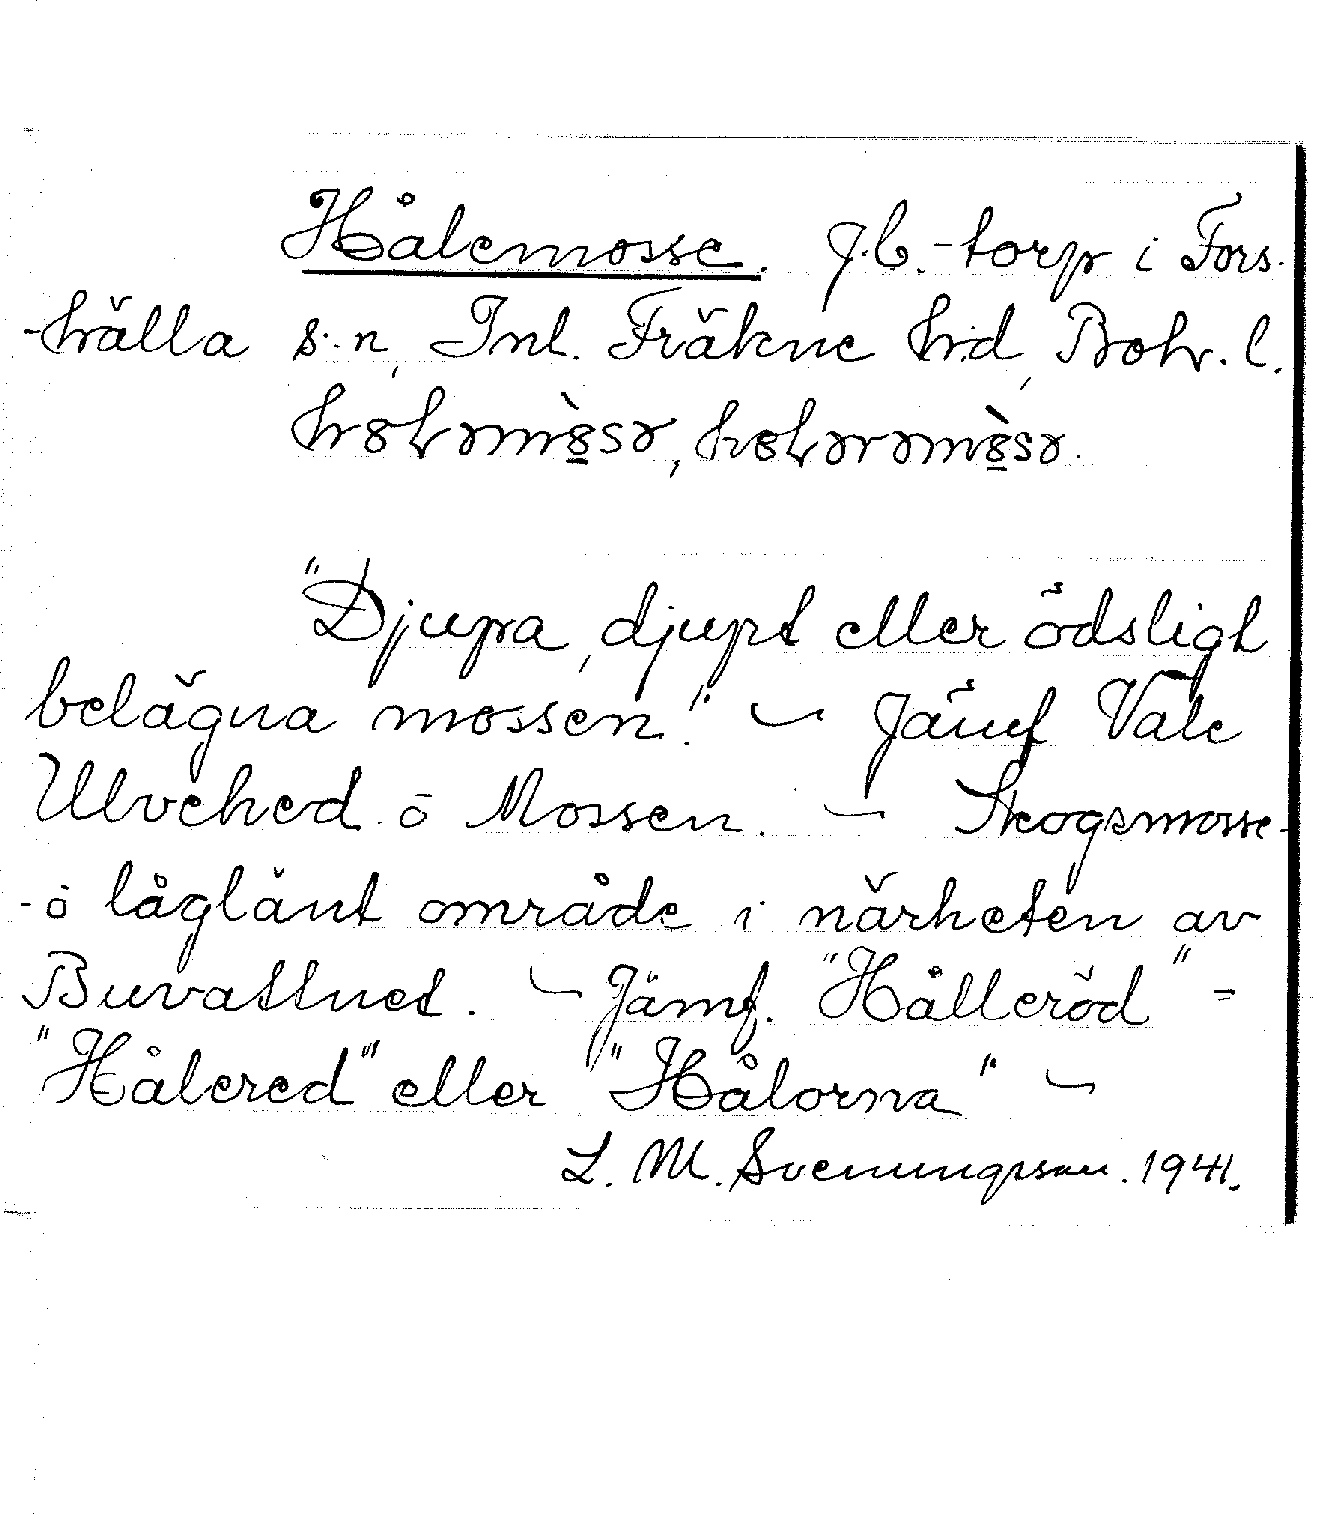 Hålemosse. J.b.-torp i Fors-
-hälla s:n, Inl. Fräkne h:d, Boh. l.

"Djupa, djupt eller ödsligt
belägna mossen." — Jämf Vale
Ulvehed o Mossen. — Skogsmosse-
-o låglänt område i närheten av
Buvattnet. — Jämf. "Hålleröd" =
"Hålered" eller "Hålorna" —
L. M. Svenungsson. 1941.